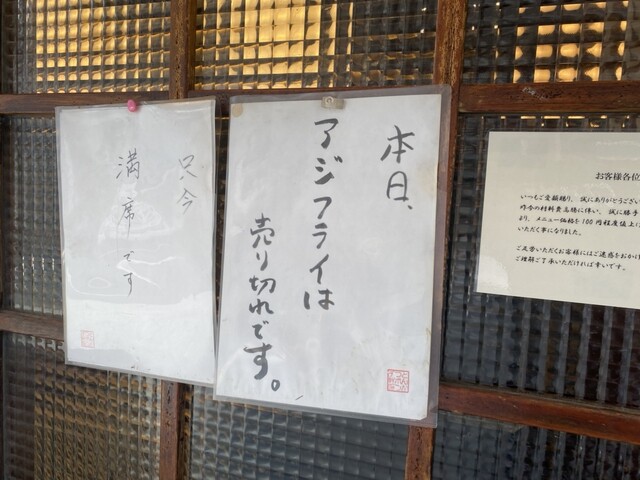 只今
満席です
本日、
アジフライは
売り切れです。
お客様各位
いつもご愛顧賜り、誠にありがとうござい
昨今の材料費高騰に伴い、誠に勝手
より、メニュー価格を100円程度値上に
いただく事になりました。
ご足労いただくお客様にはご迷惑をおかけ
ご理解ご了承いただければ幸いです。